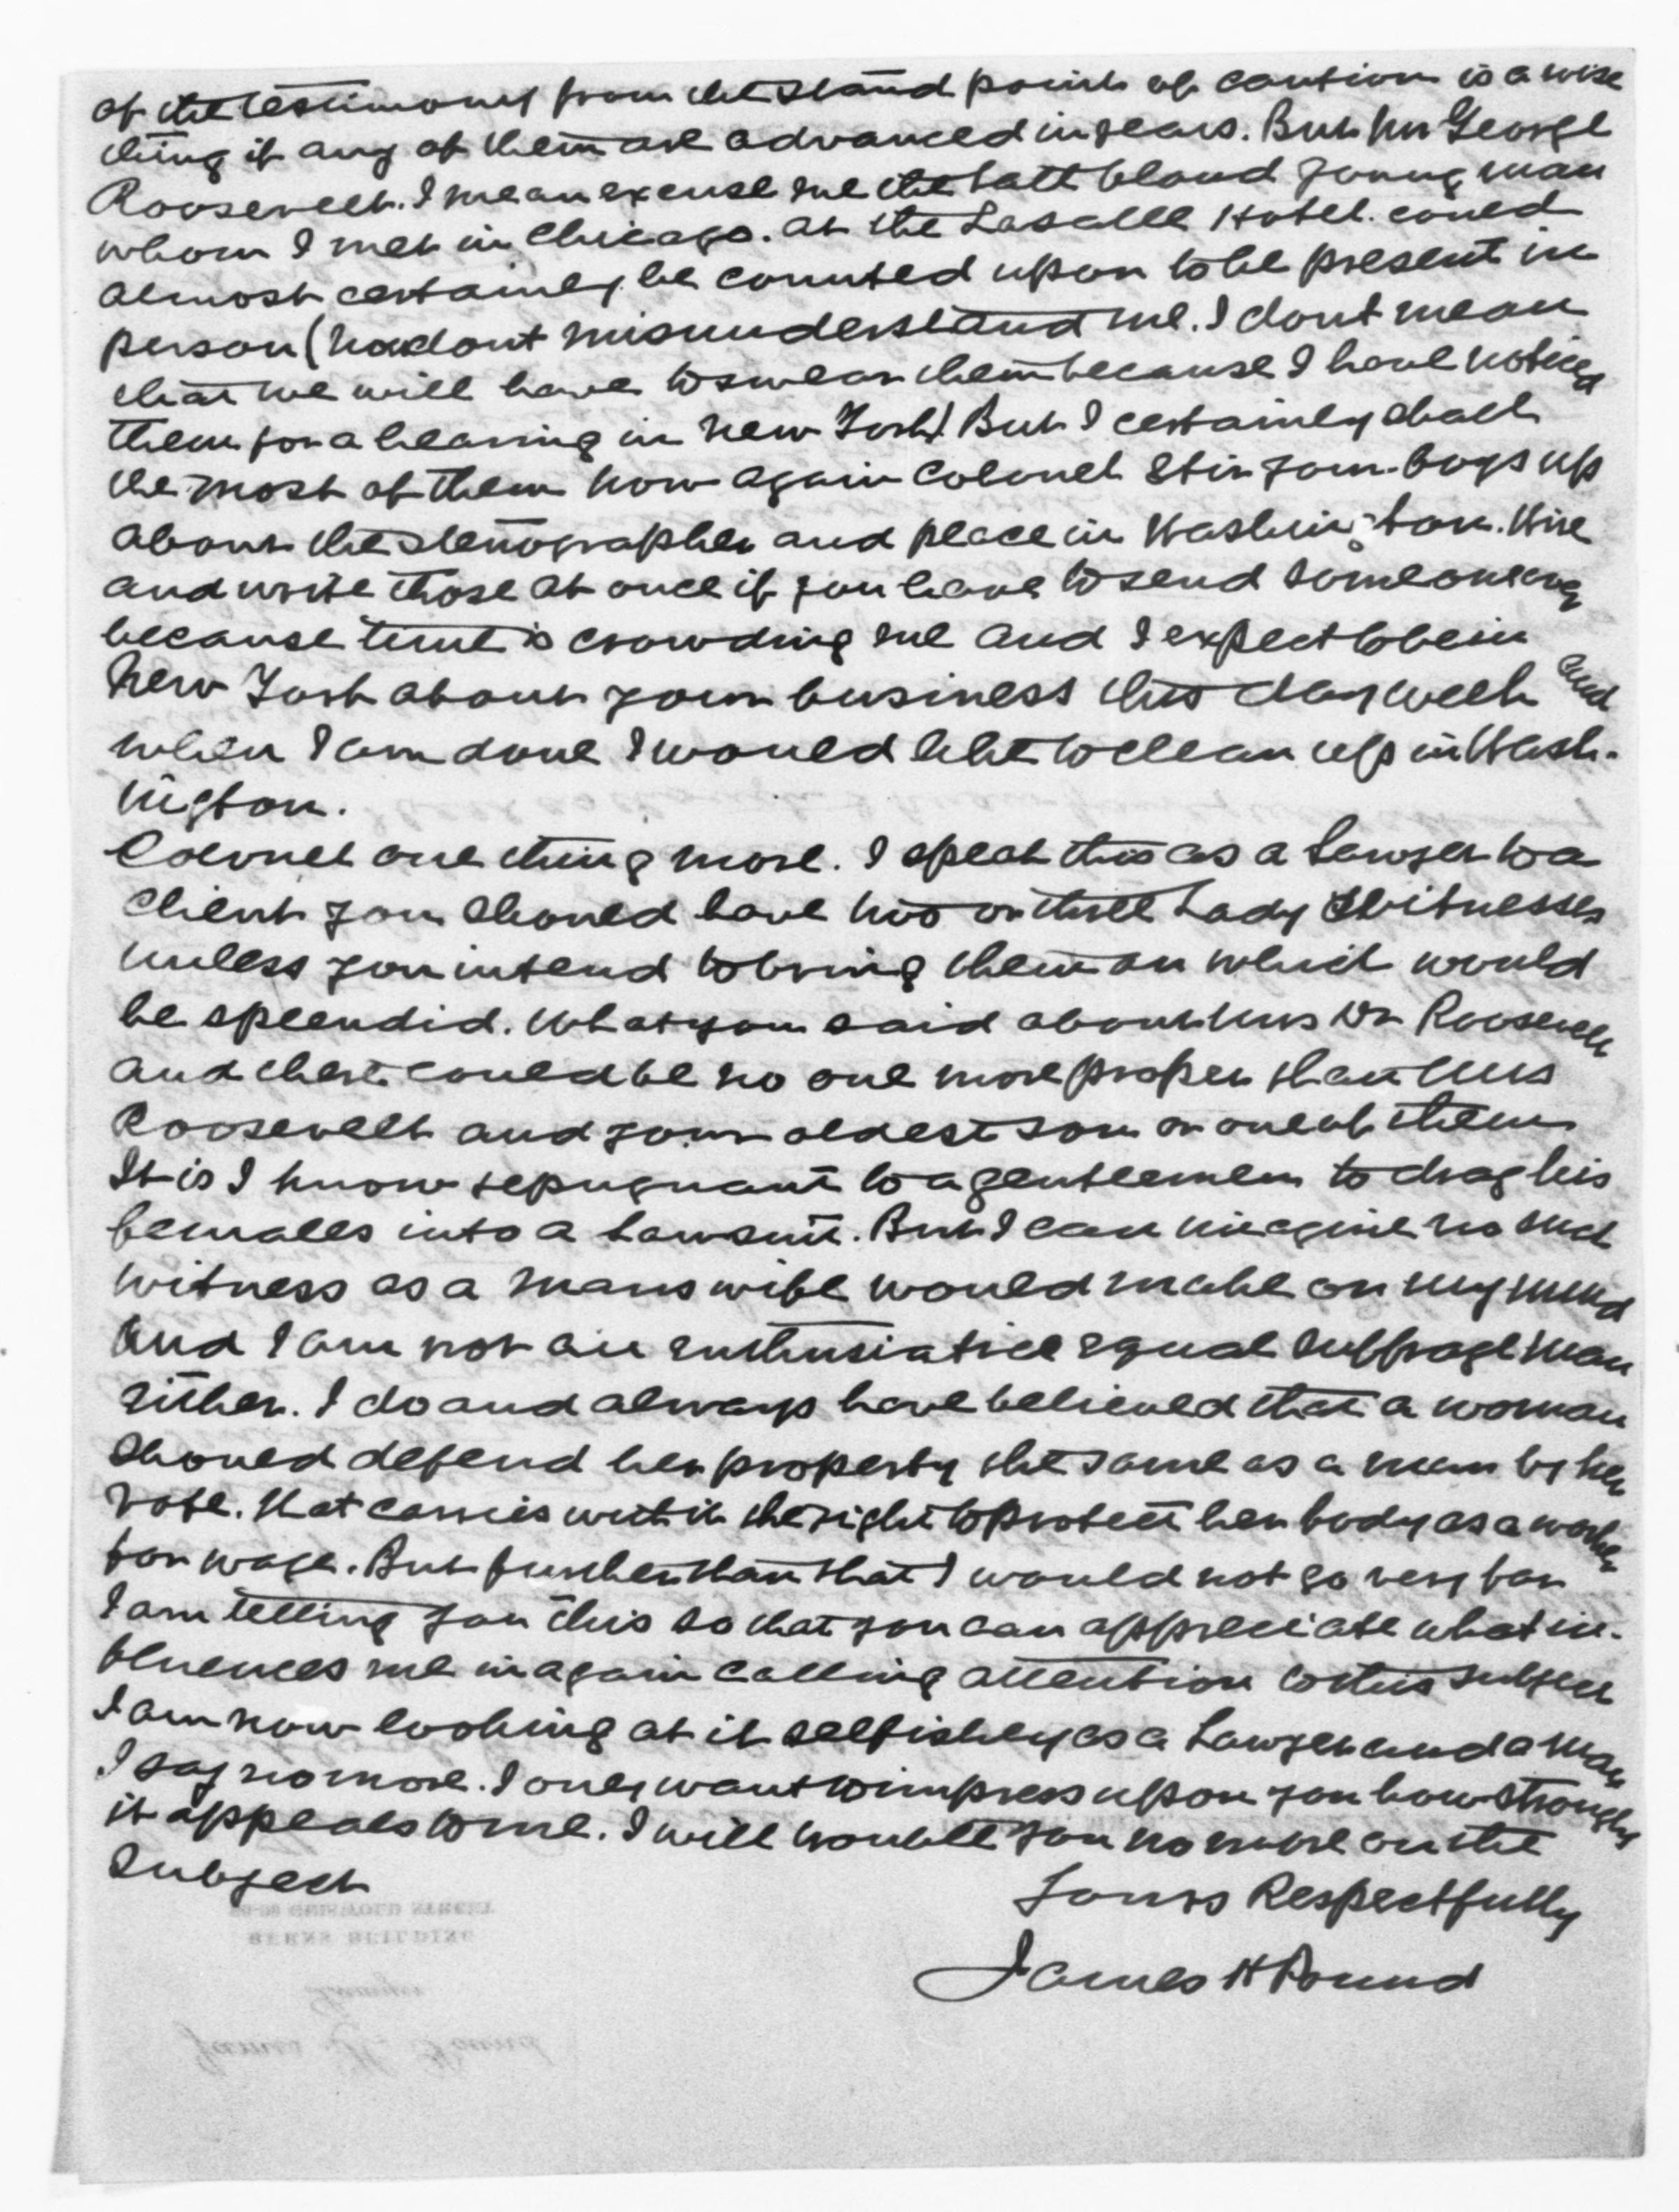 of the testimony from the stand point of caution is a wise
thing if any of them are advanced in years. But Mr George
Roosevelt. I mean excuse me the tall blond young man
whom I met in Chicago. at the Lasalle Hotel. could
almost certainly be counted upon to be present in
person (now dont misunderstand me. I dont mean
that we will have to swear them because I have noticed
them for a hearing in New York) But I certainly shall
the most of them now again Colonel Stir your boys up
about the stenographer and place in Washington. Wire
and write those at once if you have to send someone
because time is crowding me and I expect to be in
New York about your business this day week and
when I am done I would like to clean up in Wash-
ington.
Colonel one thing more. I speak this as a Lawyer to a
client you should have two or three Lady Witnesses
unless you intend to bring them on which would
be splendid. What you said about Mrs Dr Roosevelt
and there could be no one more proper than Mrs
Roosevelt and your oldest son or one of them
It is I know repugnant to a gentlemen to drag his
females into a Lawsuit. But I can imagine no such
witness as a mans wife would make on my mind
And I am not an enthusiatice equal suffrage man
either. I do and always have believed that a woman
should defend her property the same as a man by her
vote. that carries with it the right to protect her body as a worker
for wage. But further than that I would not go very far
I am telling you this so that you can appreciate what in-
fluences me in again calling attention to this subject
I am now looking at it selfishly as a Lawyer and a man
I say no more. I only want to impress upon you how strongly
it appeals to me. I will trouble you no more on the
Subject
Yours Respectfully
James H Pound